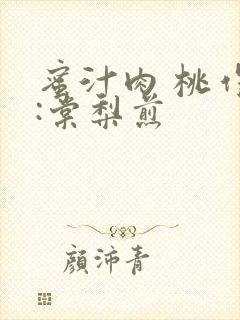 蜜汁肉桃作
:棠梨煎
顔沛青